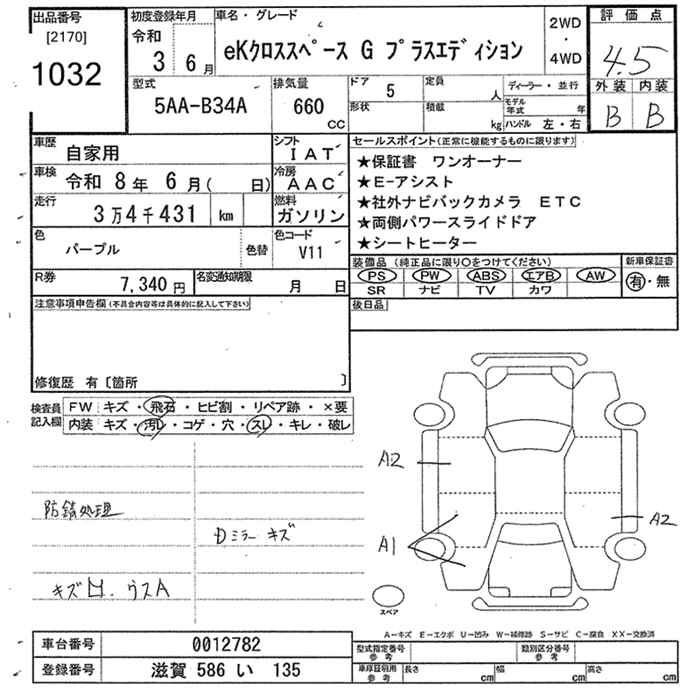 出品番号
[2170]
1032
初度登録年月
令和
3 6月
車名・グレード
eKクロススペース G プラスエディション
2WD
・
4WD
評価点
4.5
外装 内装
B B
型式
5AA-B34A
排気量
660
CC
ドア 5
形状
定員 人
積載 kg
ディーラー・並行
モデル年式 年
ハンドル 左・右
車歴 自家用
シフト IAT
車検 令和 8年 6月( 日)
冷房 AAC
走行 3万4千431 km
燃料 ガソリン
色 パープル 色替
色コード V11
R券 7,340円
名変通知期限 月 日
セールスポイント(正常に機能するものに限ります)
★保証書 ワンオーナー
★E-アシスト
★社外ナビバックカメラ ETC
★両側パワースライドドア
★シートヒーター
装備品 (純正品に限り○をつけてください)
PS PW ABS エアB AW
SR ナビ TV カワ
新車保証書
有・無
後日品
注意事項申告欄(不具合内容等は具体的に記入して下さい)
修復歴 有〔箇所 〕
検査員記入欄
FW キズ・飛石・ヒビ割・リペア跡・×要
内装 キズ・汚レ・コゲ・穴・スレ・キレ・破レ
防錆処理
Dミラー キズ
キズ凹.ウスA
A2
A1
A2
スペア
A-キズ E-エクボ U-凹み W-補修跡 S-サビ C-腐食 XX-交換済
車台番号 0012782
登録番号 滋賀 586 い 135
型式指定番号 参考
類別区分番号 参考
車庫証明用 参考
長さ cm 幅 cm 高さ cm